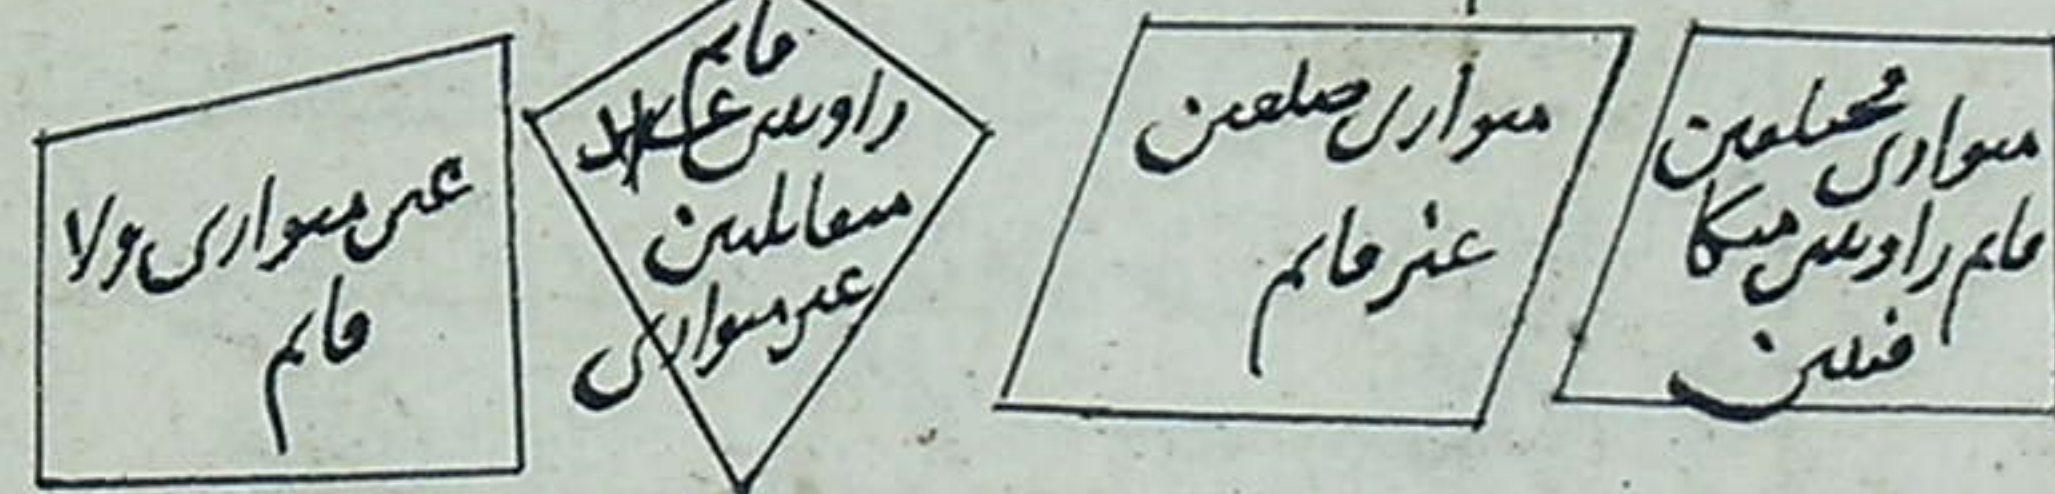 متوازی مختلفین
قایم زاویتین متکا
فئتین
متوازی ضلعین
غیر قایم
قایم
زاویتین
متقابلتین
غیر متوازی
غیر متوازی ولا
قایم